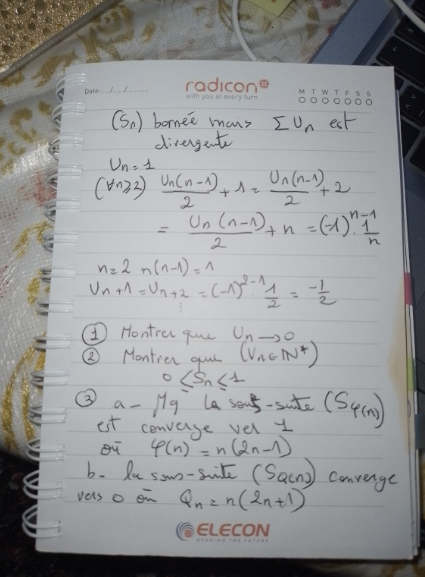 Date / /
radicon
with you at every turn
M T W T F S S
(Sn) bornée mais Σ Un est
divergente
Un = 1
(∀n≥2) Un(n-1)/2 + 1 = Un(n-1)/2 + 2
= Un(n-1)/2 + n = (-1)^(n-1) · 1/n
n=2 n(n-1) = 1
Un+1 = Un+2 = (-1)^(2-1) · 1/2 = -1/2
⋮
① Montrer que Un → 0
② Montrer que (∀n∈ℕ*)
0 ≤ Sn ≤ 1
③ a- Mq la sous-suite (Sφ(n))
est converge vers 1
où φ(n) = n(2n-1)
b- la sous-suite (SQ(n)) converge
vers 0 où Qn = n(2n+1)
ELECON